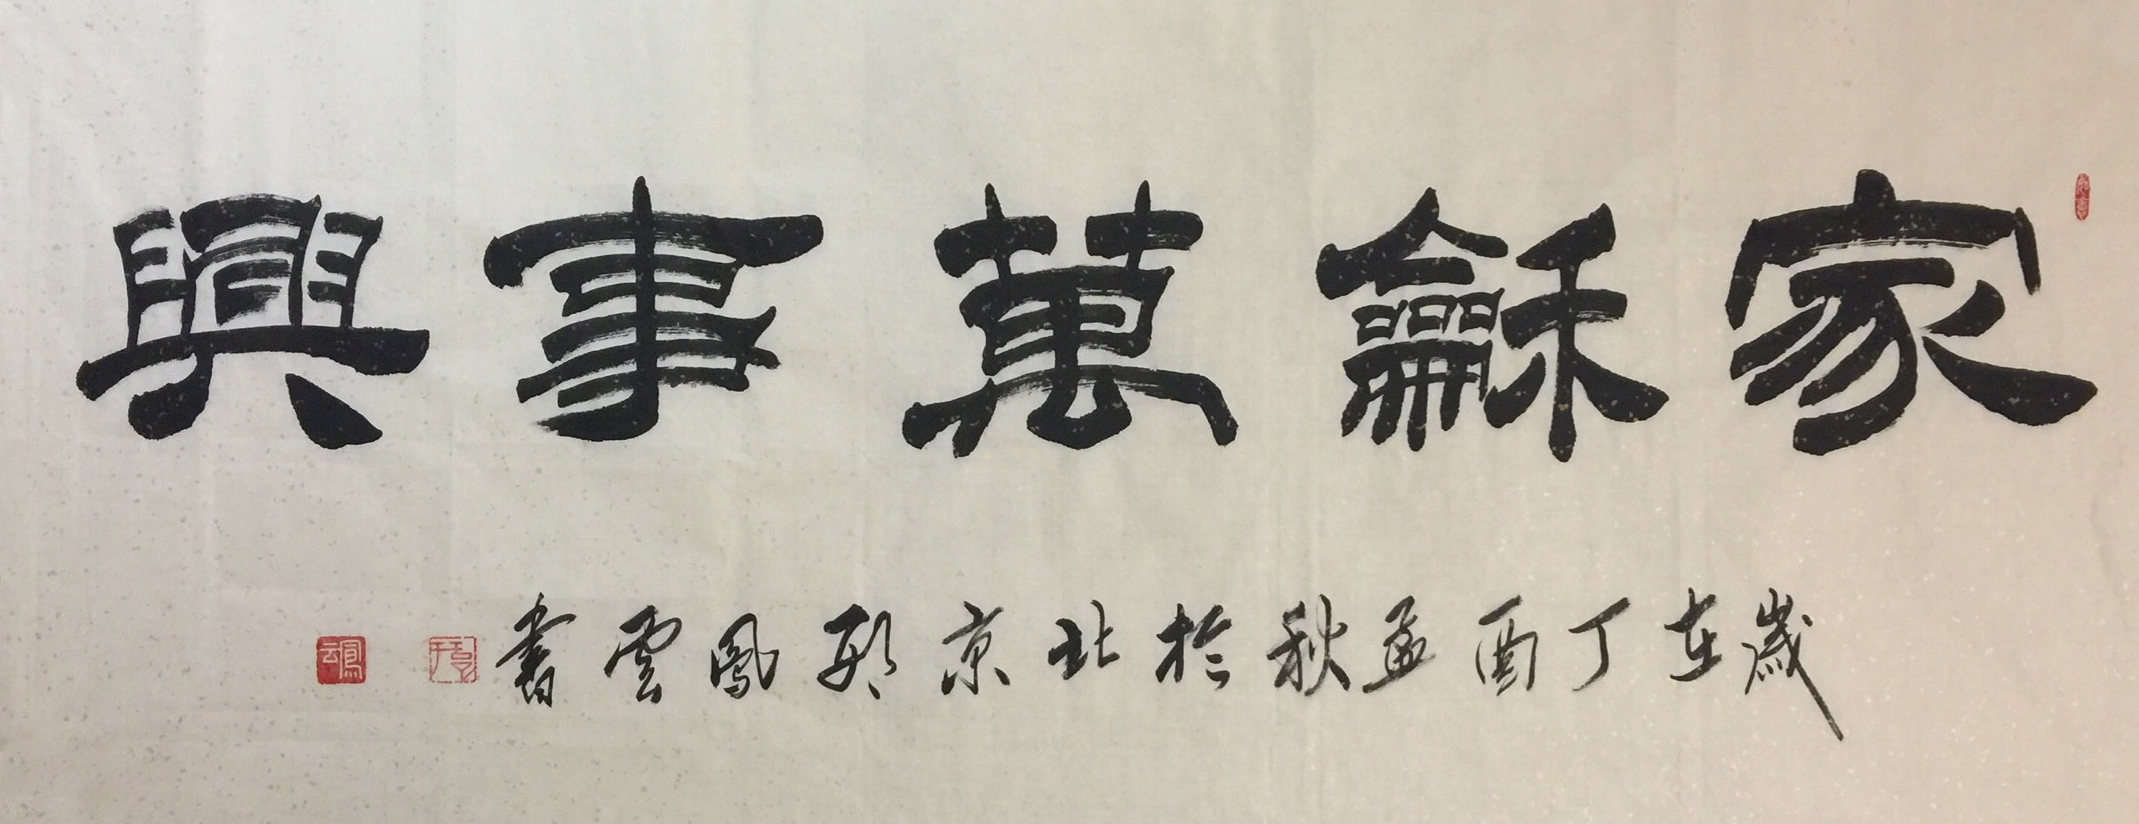 家龢萬事興
歲在丁酉孟秋於北京邢鳳雲書